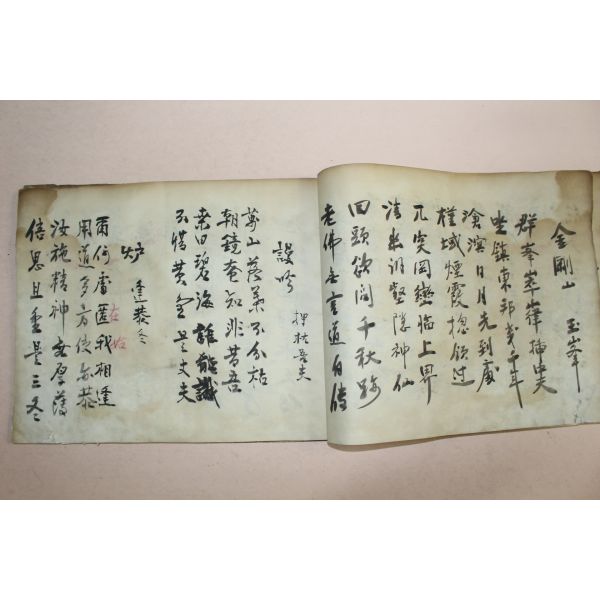 金剛山 玉峯
群峯崒嵂揷中天
坐鎭東邦幾千年
滄溟日月先到處
槿域煙霞摠領過
兀突岡巒臨上界
清幽洞壑隱神仙
回頭欲問千秋跡
老佛無言道自傳
謾吟 押枯吾夫
山落葉不分枯
朝鏡奄知非昔吾
桑田碧海誰能識
不惜黃金是丈夫
炉 逢恭冬
爾何處匿我相逢
用道多方使每恭
汝施精神厚薄
恩且重是三冬